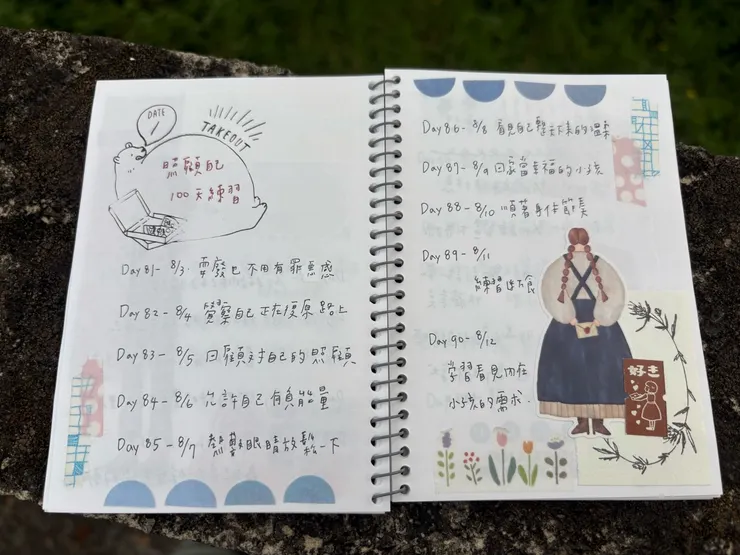 DATE
TAKEOUT
照顧自己
100天練習
Day 81- 8/3. 耍廢也不用有罪惡感
Day 82- 8/4 覺察自己正在復原路上
Day 83- 8/5 回顧對自己的照顧
Day 84- 8/6 允許自己有負能量
Day 85- 8/7 熱敷眼睛放鬆一下
Day 86- 8/8 看見自己整下來的溫柔
Day 87- 8/9 回家當幸福的小孩
Day 88- 8/10 順著身体節奏
Day 89- 8/11
練習斷食
Day 90- 8/12
學習看見內在
小孩的需求.
好き